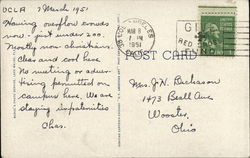 UCLA 7 March 1951
Having overflow crowds
now - just under 200.
Mostly non christians.
Clear and cool here
No meeting or adver-
tising permitted on
campus here. We are
staying
Chas.
MAR 8
1951
POST CARD
Mrs. J. N. Dickason
1473 Beall Ave
Wooster,
Ohio